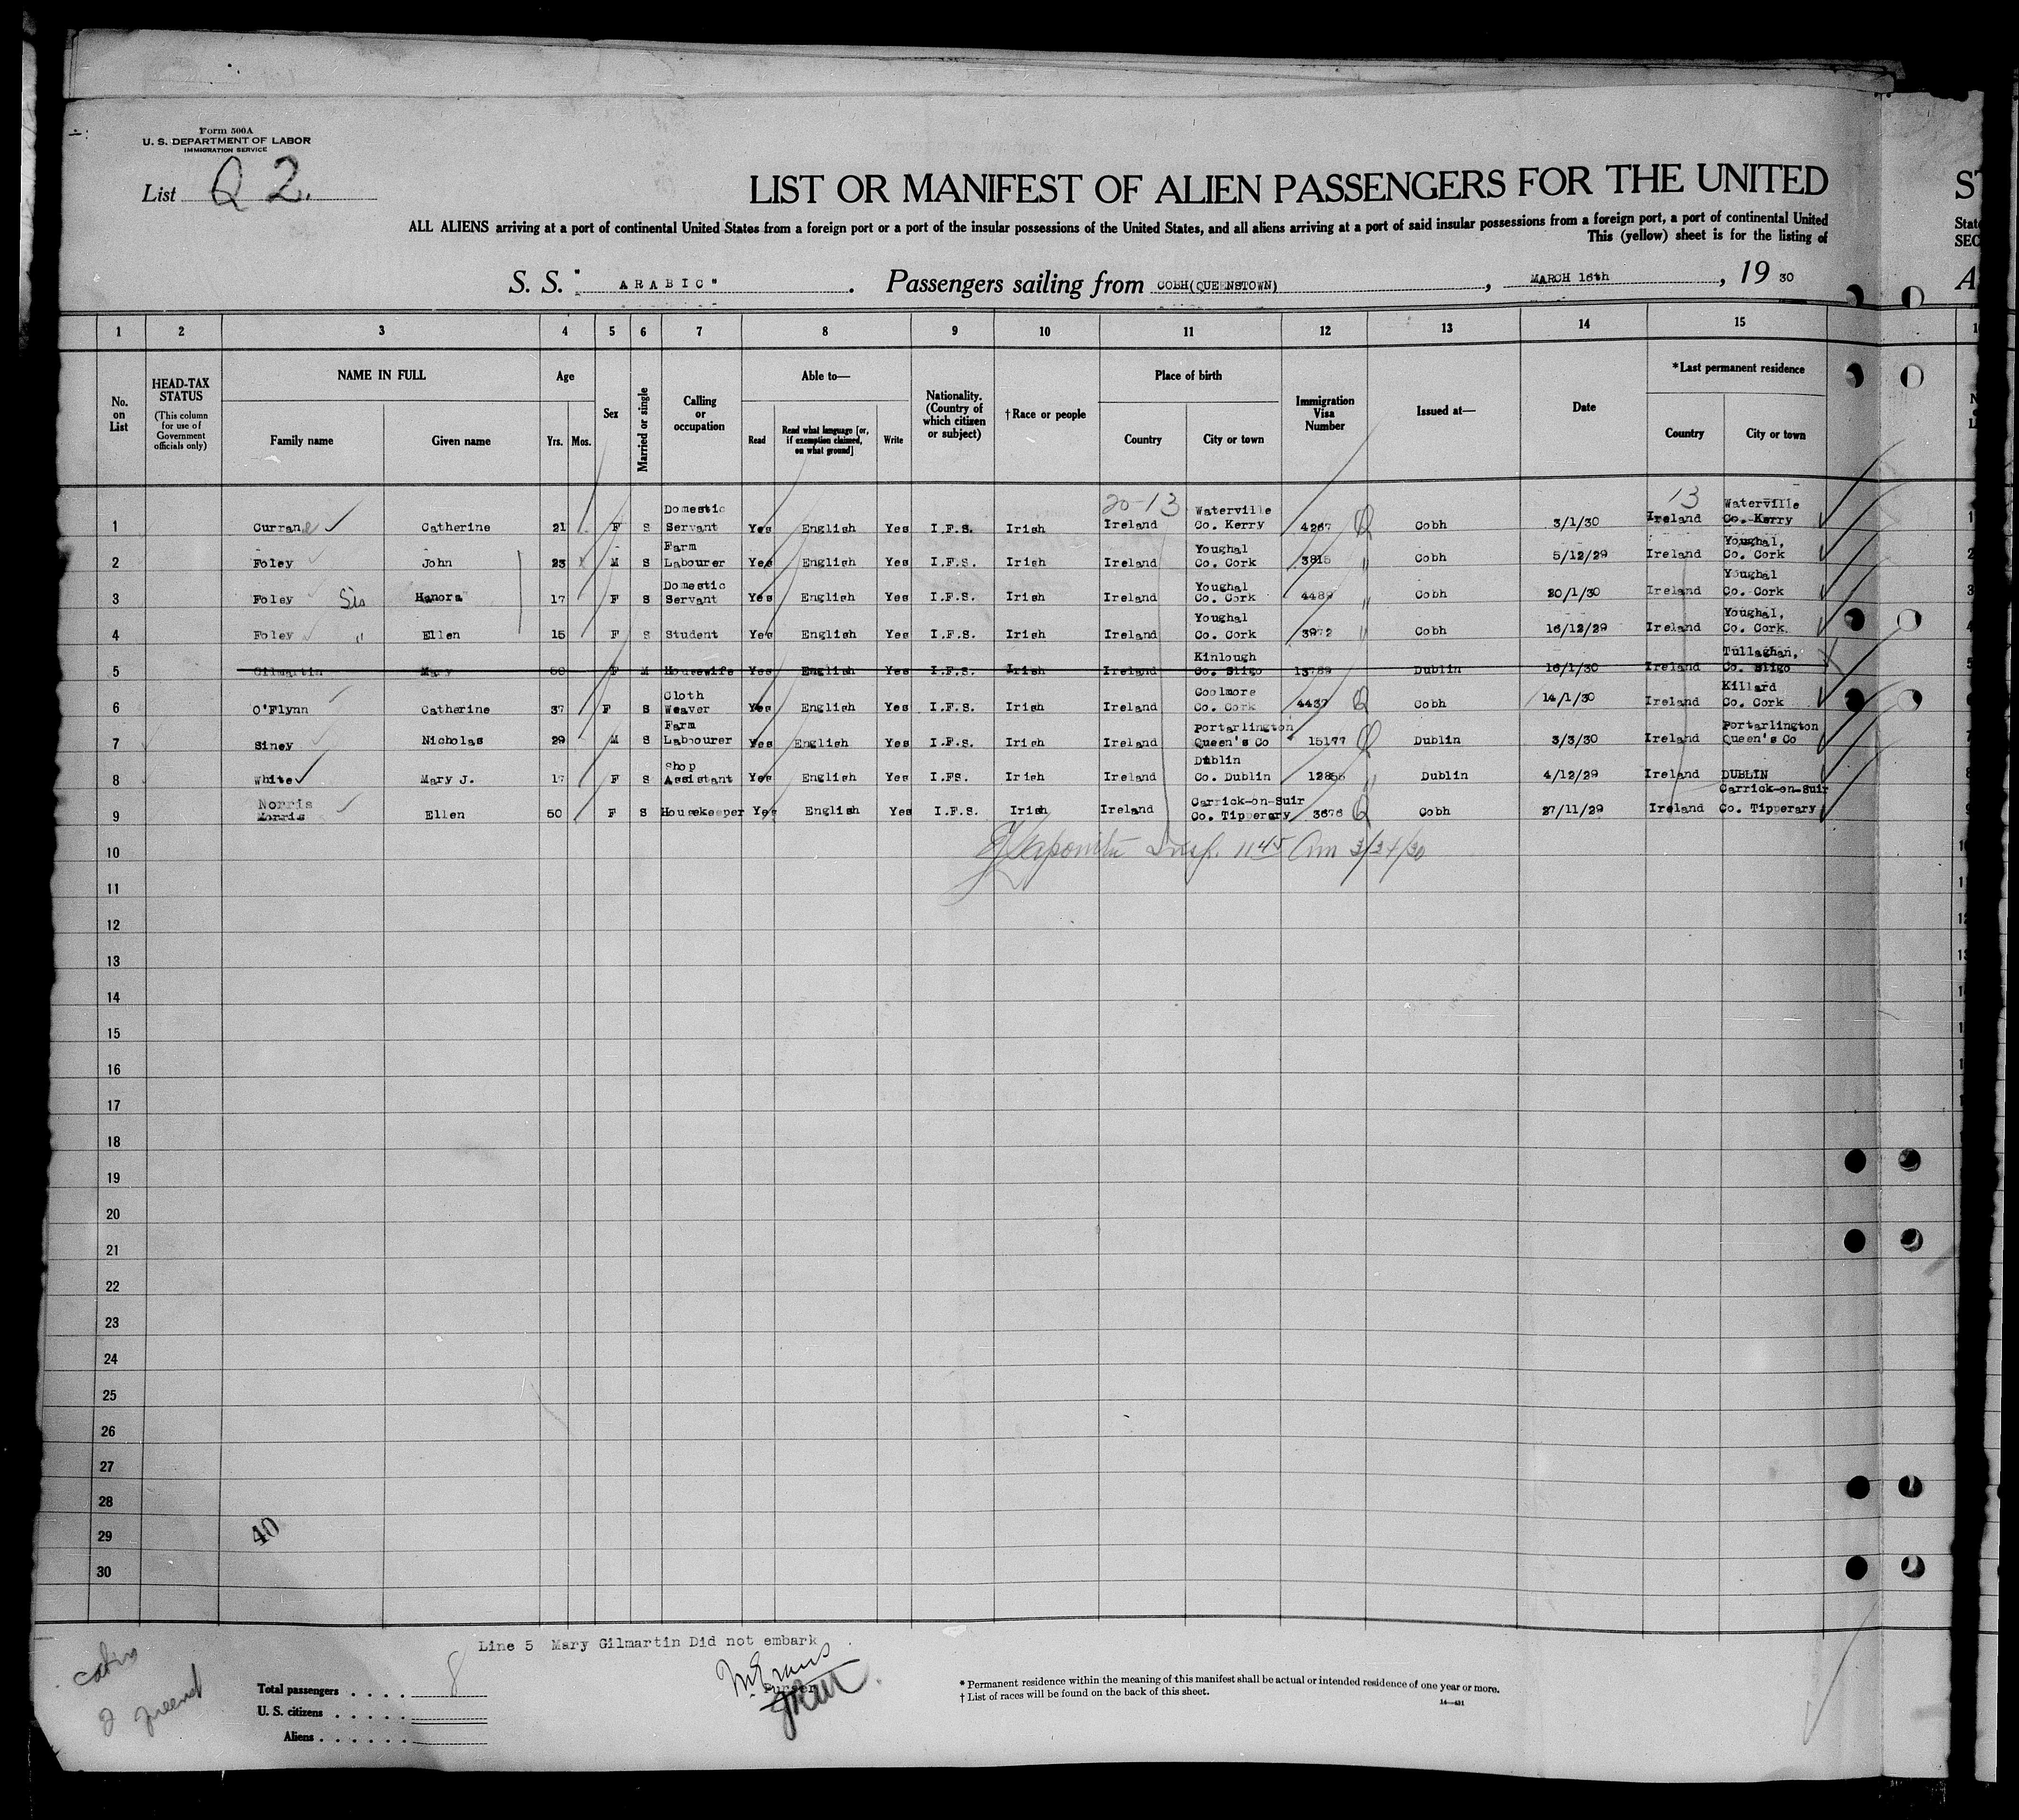 Form 500A
U. S. DEPARTMENT OF LABOR
IMMIGRATION SERVICE
List Q 2.
LIST OR MANIFEST OF ALIEN PASSENGERS FOR THE UNITED
ALL ALIENS arriving at a port of continental United States from a foreign port or a port of the insular possessions of the United States, and all aliens arriving at a port of said insular possessions from a foreign port, a port of continental United
This (yellow) sheet is for the listing of
S. S. "ARABIC". Passengers sailing from COBH(QUEENSTOWN), MARCH 16th, 1930
1 2 3 4 5 6 7 8 9 10 11 12 13 14 15
No. on List
HEAD-TAX STATUS (This column for use of Government officials only)
NAME IN FULL
Family name Given name
Age
Yrs. Mos.
Sex
Married or single
Calling or occupation
Able to—
Read Read what language [or, if exemption claimed, on what ground] Write
Nationality. (Country of which citizen or subject)
†Race or people
Place of birth
Country City or town
Immigration Visa Number
Issued at—
Date
*Last permanent residence
Country City or town
20-13 13
1 Currane Catherine 21 F S Domestic Servant Yes English Yes I.F.S. Irish Ireland Waterville Co. Kerry 4267 Q Cobh 3/1/30 Ireland Waterville Co. Kerry 1
2 Foley John 23 M S Farm Labourer Yes English Yes I.F.S. Irish Ireland Youghal Co. Cork 3815 " Cobh 5/12/29 Ireland Youghal, Co. Cork 2
3 Foley Sis Hanora 17 F S Domestic Servant Yes English Yes I.F.S. Irish Ireland Youghal Co. Cork 4489 " Cobh 20/1/30 Ireland Youghal Co. Cork 3
4 Foley " Ellen 15 F S Student Yes English Yes I.F.S. Irish Ireland Youghal Co. Cork 3972 " Cobh 16/12/29 Ireland Youghal, Co. Cork. 4
5 Gilmartin Mary 50 F M Housewife Yes English Yes I.F.S. Irish Ireland Kinlough Co. Sligo 13789 Dublin 16/1/30 Ireland Tullaghan, Co. Sligo 5
6 O'Flynn Catherine 37 F S Cloth Weaver Yes English Yes I.F.S. Irish Ireland Coolmore Co. Cork 4437 Q Cobh 14/1/30 Ireland Killard Co. Cork
7 Siney Nicholas 29 M S Farm Labourer Yes English Yes I.F.S. Irish Ireland Portarlington Queen's Co 15177 Q Dublin 3/3/30 Ireland Portarlington Queen's Co 7
8 White Mary J. 17 F S Shop Assistant Yes English Yes I.FS. Irish Ireland Dublin Co. Dublin 12856 " Dublin 4/12/29 Ireland DUBLIN 8
9 Norris Morris Ellen 50 F S Housekeeper Yes English Yes I.F.S. Irish Ireland Carrick-on-Suir Co. Tipperary 3676 Q Cobh 27/11/29 Ireland Carrick-on-Suir Co. Tipperary 9
10 Insp. 11 45 Am 3/24/30
11
12
13
14
15
16
17
18
19
20
21
22
23
24
25
26
27
28
29
30
40
Line 5 Mary Gilmartin Did not embark
Purser
Total passengers . . . . 8
U. S. citizens . . . . .
Aliens . . . . . .
* Permanent residence within the meaning of this manifest shall be actual or intended residence of one year or more.
† List of races will be found on the back of this sheet.